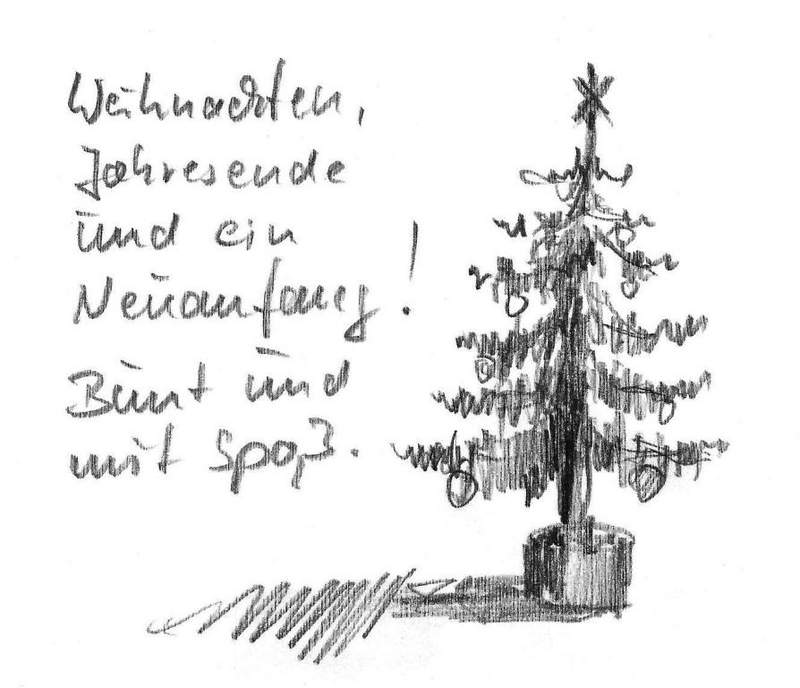 Weihnachten,
Jahresende
und ein
Neuanfang!
Bunt und
mit Spaß.